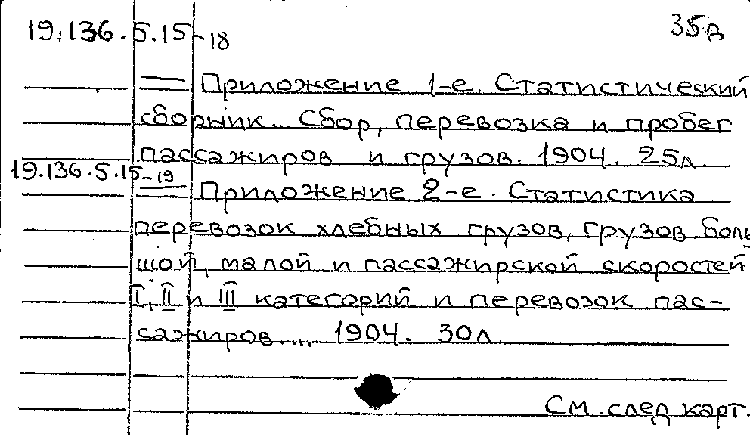 19.136.5.15-18 35д
— Приложение 1-е. Статистический
сборник. Сбор, перевозка и пробег
пассажиров и грузов. 1904. 25л.
19.136.5.15-19
— Приложение 2-е. Статистика
перевозок хлебных грузов, грузов боль
шой, малой и пассажирской скоростей
I, II и III категорий и перевозок пас-
сажиров.... 1904. 30л
См. след карт.